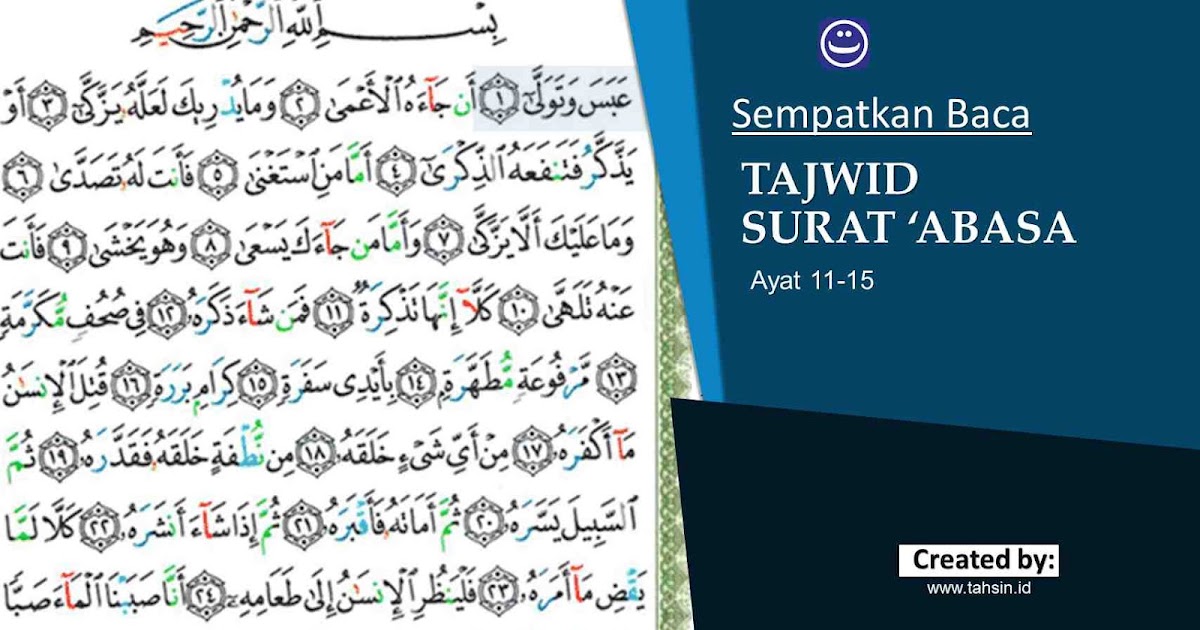 بِسْمِ ٱللَّهِ ٱلرَّحْمَٰنِ ٱلرَّحِيمِ
عَبَسَ وَتَوَلَّىٰٓ ١ أَن جَآءَهُ ٱلْأَعْمَىٰ ٢ وَمَا يُدْرِيكَ لَعَلَّهُۥ يَزَّكَّىٰٓ ٣ أَوْ
يَذَّكَّرُ فَتَنفَعَهُ ٱلذِّكْرَىٰٓ ٤ أَمَّا مَنِ ٱسْتَغْنَىٰ ٥ فَأَنتَ لَهُۥ تَصَدَّىٰ ٦
وَمَا عَلَيْكَ أَلَّا يَزَّكَّىٰ ٧ وَأَمَّا مَن جَآءَكَ يَسْعَىٰ ٨ وَهُوَ يَخْشَىٰ ٩ فَأَنتَ
عَنْهُ تَلَهَّىٰ ١٠ كَلَّآ إِنَّهَا تَذْكِرَةٌ ١١ فَمَن شَآءَ ذَكَرَهُۥ ١٢ فِى صُحُفٍ مُّكَرَّمَةٍ
١٣ مَّرْفُوعَةٍ مُّطَهَّرَةٍۭ ١٤ بِأَيْدِى سَفَرَةٍ ١٥ كِرَامٍۭ بَرَرَةٍ ١٦ قُتِلَ ٱلْإِنسَٰنُ
مَآ أَكْفَرَهُۥ ١٧ مِنْ أَىِّ شَىْءٍ خَلَقَهُۥ ١٨ مِن نُّطْفَةٍ خَلَقَهُۥ فَقَدَّرَهُۥ ١٩ ثُمَّ
ٱلسَّبِيلَ يَسَّرَهُۥ ٢٠ ثُمَّ أَمَاتَهُۥ فَأَقْبَرَهُۥ ٢١ ثُمَّ إِذَا شَآءَ أَنشَرَهُۥ ٢٢ كَلَّا لَمَّا
يَقْضِ مَآ أَمَرَهُۥ ٢٣ فَلْيَنظُرِ ٱلْإِنسَٰنُ إِلَىٰ طَعَامِهِۦٓ ٢٤ أَنَّا صَبَبْنَا ٱلْمَآءَ صَبًّا
Sempatkan Baca
TAJWID
SURAT ‘ABASA
Ayat 11-15
Created by:
www.tahsin.id